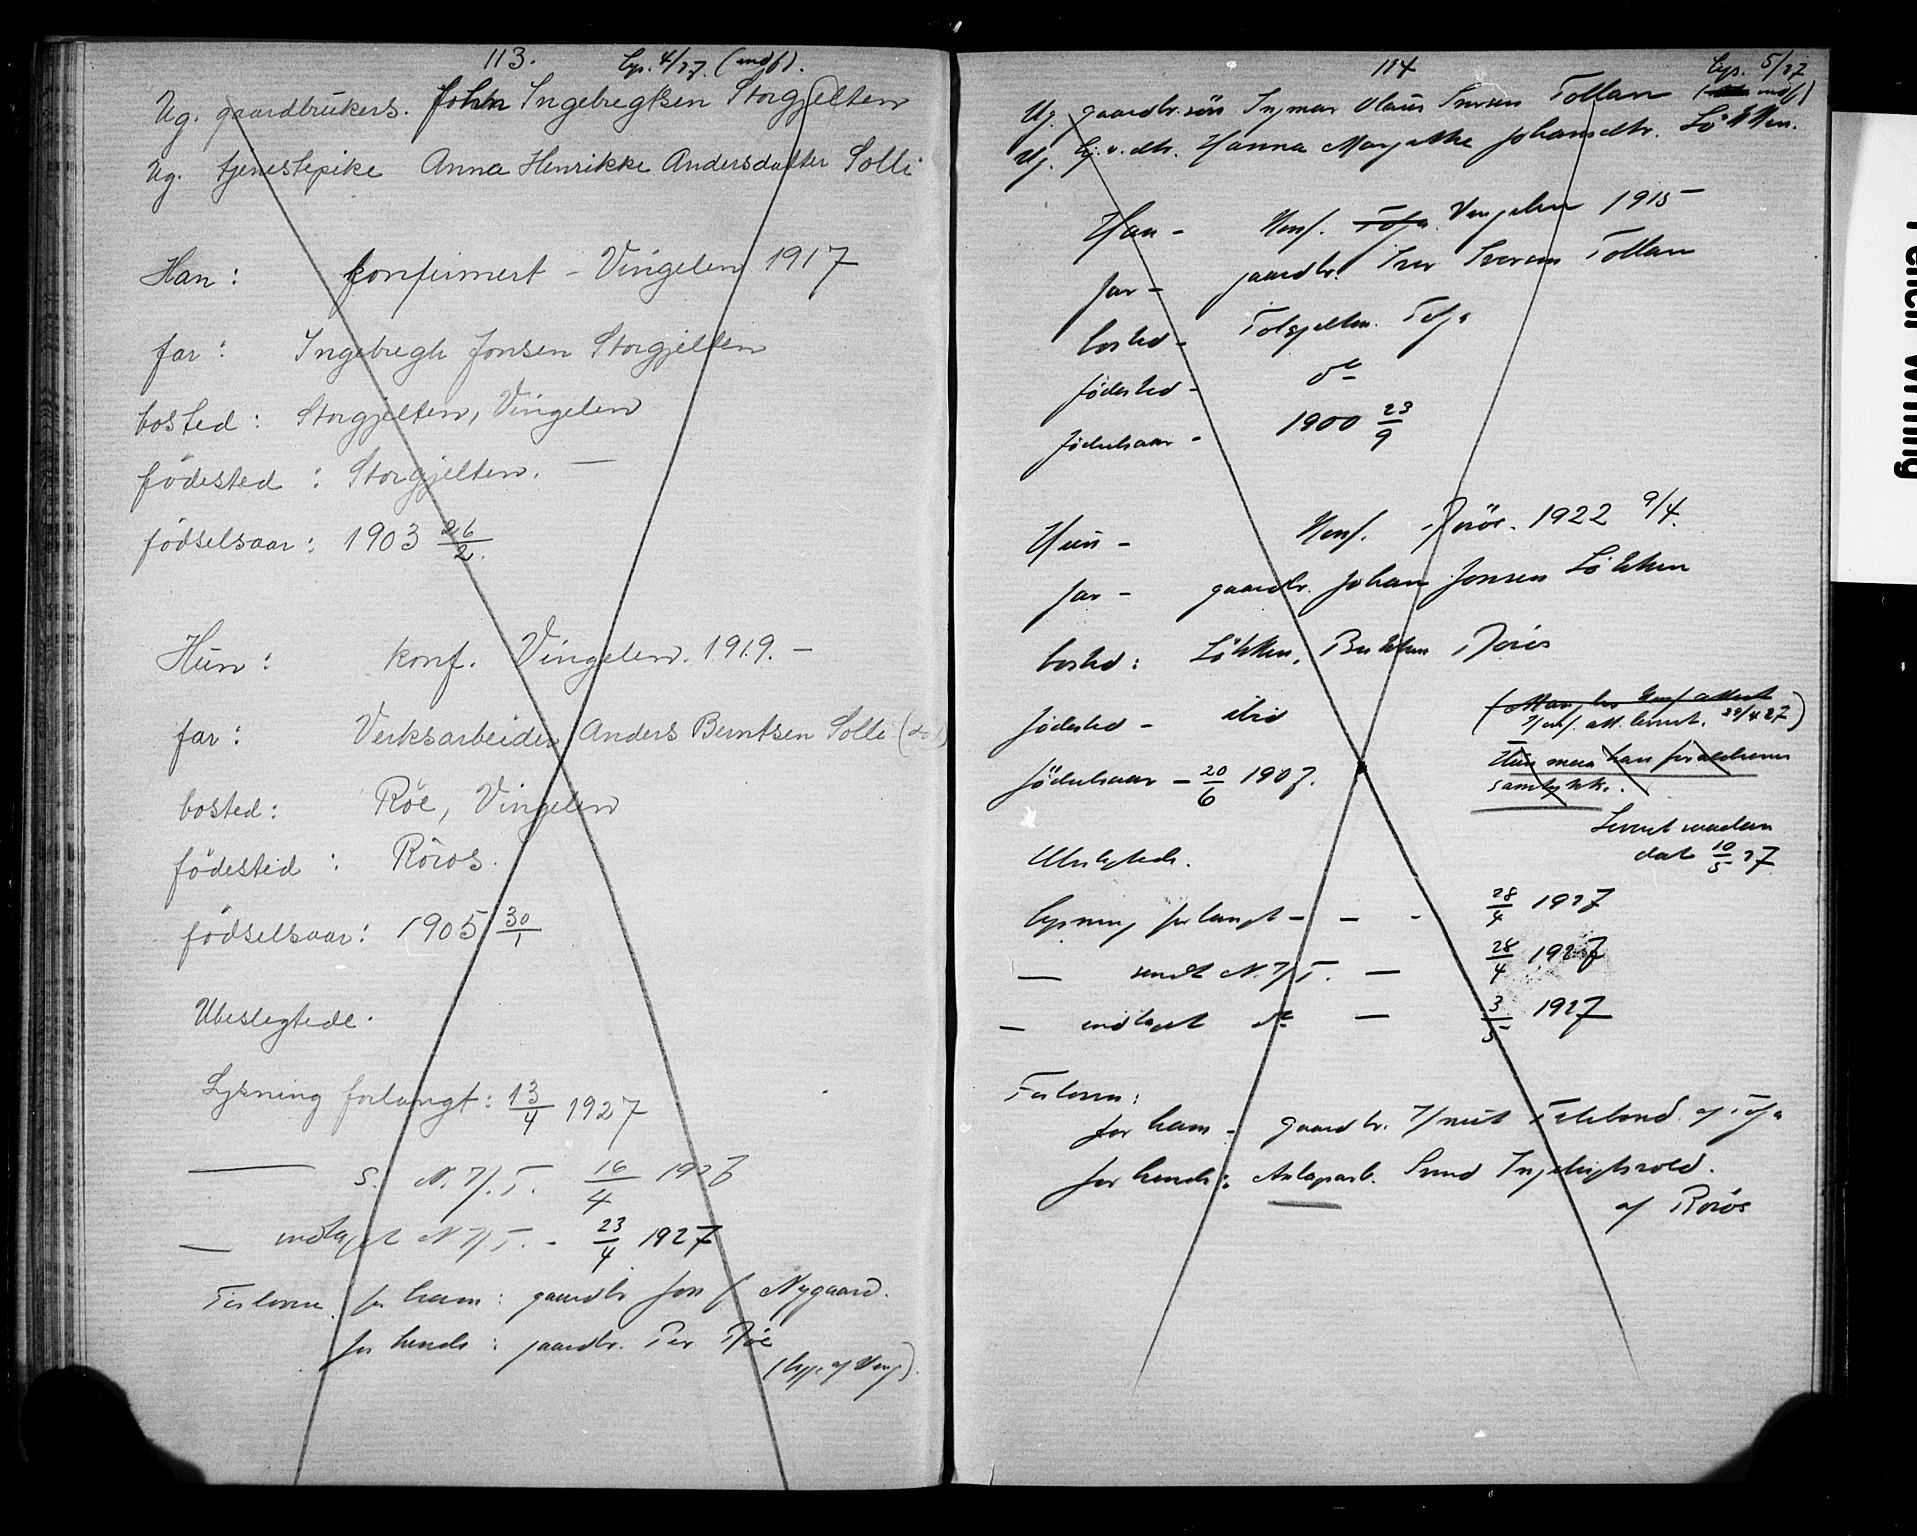 113. Lys. 4/27. (indf).
Ug. gaardbrukers. John Ingebregtsen Storgjelten
Ug. tjenestepike Anna Henrikke Andersdatter Solli
Han : konfirmert - Vingelen 1917
far : Ingebregt Jonsen Storgjelten
bosted : Storgjelten, Vingelen
födested : Storgjelten. —
födselsaar : 1903 26/2.
Hun : konf. Vingelen. 1919. -
far : Verksarbeider Anders Berntsen Solli
bosted : Röe, Vingelen
födested : Röros.
födselsaar : 1905 30/1
Ubeslegtede.
Lysning forlangt : 13/4 1927
— S. N. 7/. T. 16/4 1927
— indtaget N 7/T. - 23/4 1927
Forlovere for ham : gaardbr Jon J Nygaard.
for hende : gaardbr. Per Röe
114 Lys. 5/27
Ug. gaardbr.sön Ingmar Olaus Iversen Tollan indf)
Ug. dtr. Hanna Margethe Johansdtr. Lökken.
Han - Konf. Tolga. Vingelen 1915 -
far - gaardbr. Iver Iversen Tollan
bosted - Tolga
födested - do
födselsaar - 1900 23/9
Hun - Konf. Röros. 1922 9/4.
far - gaardbr. Johan Jonsen Lökken
bosted : Lökken, Brekken Röros
födested - ibid
(Mangler konf attest
Konf. att. levert. 29/4 27)
födselsaar - 20/6 1907.
Hun maa ha foraldrenes
samtykke.
Levert
dat 10/5 27
Ubeslegtede.
Lysning forlangt - - - 28/4 1927
— sendt N. 7/T. — 28/4 1927
— indtaget do — 3/5 1927
Forlovere :
for ham - gaardbr. af Tolga
for hende : Svend Ingebrigtsvold.
af Röros